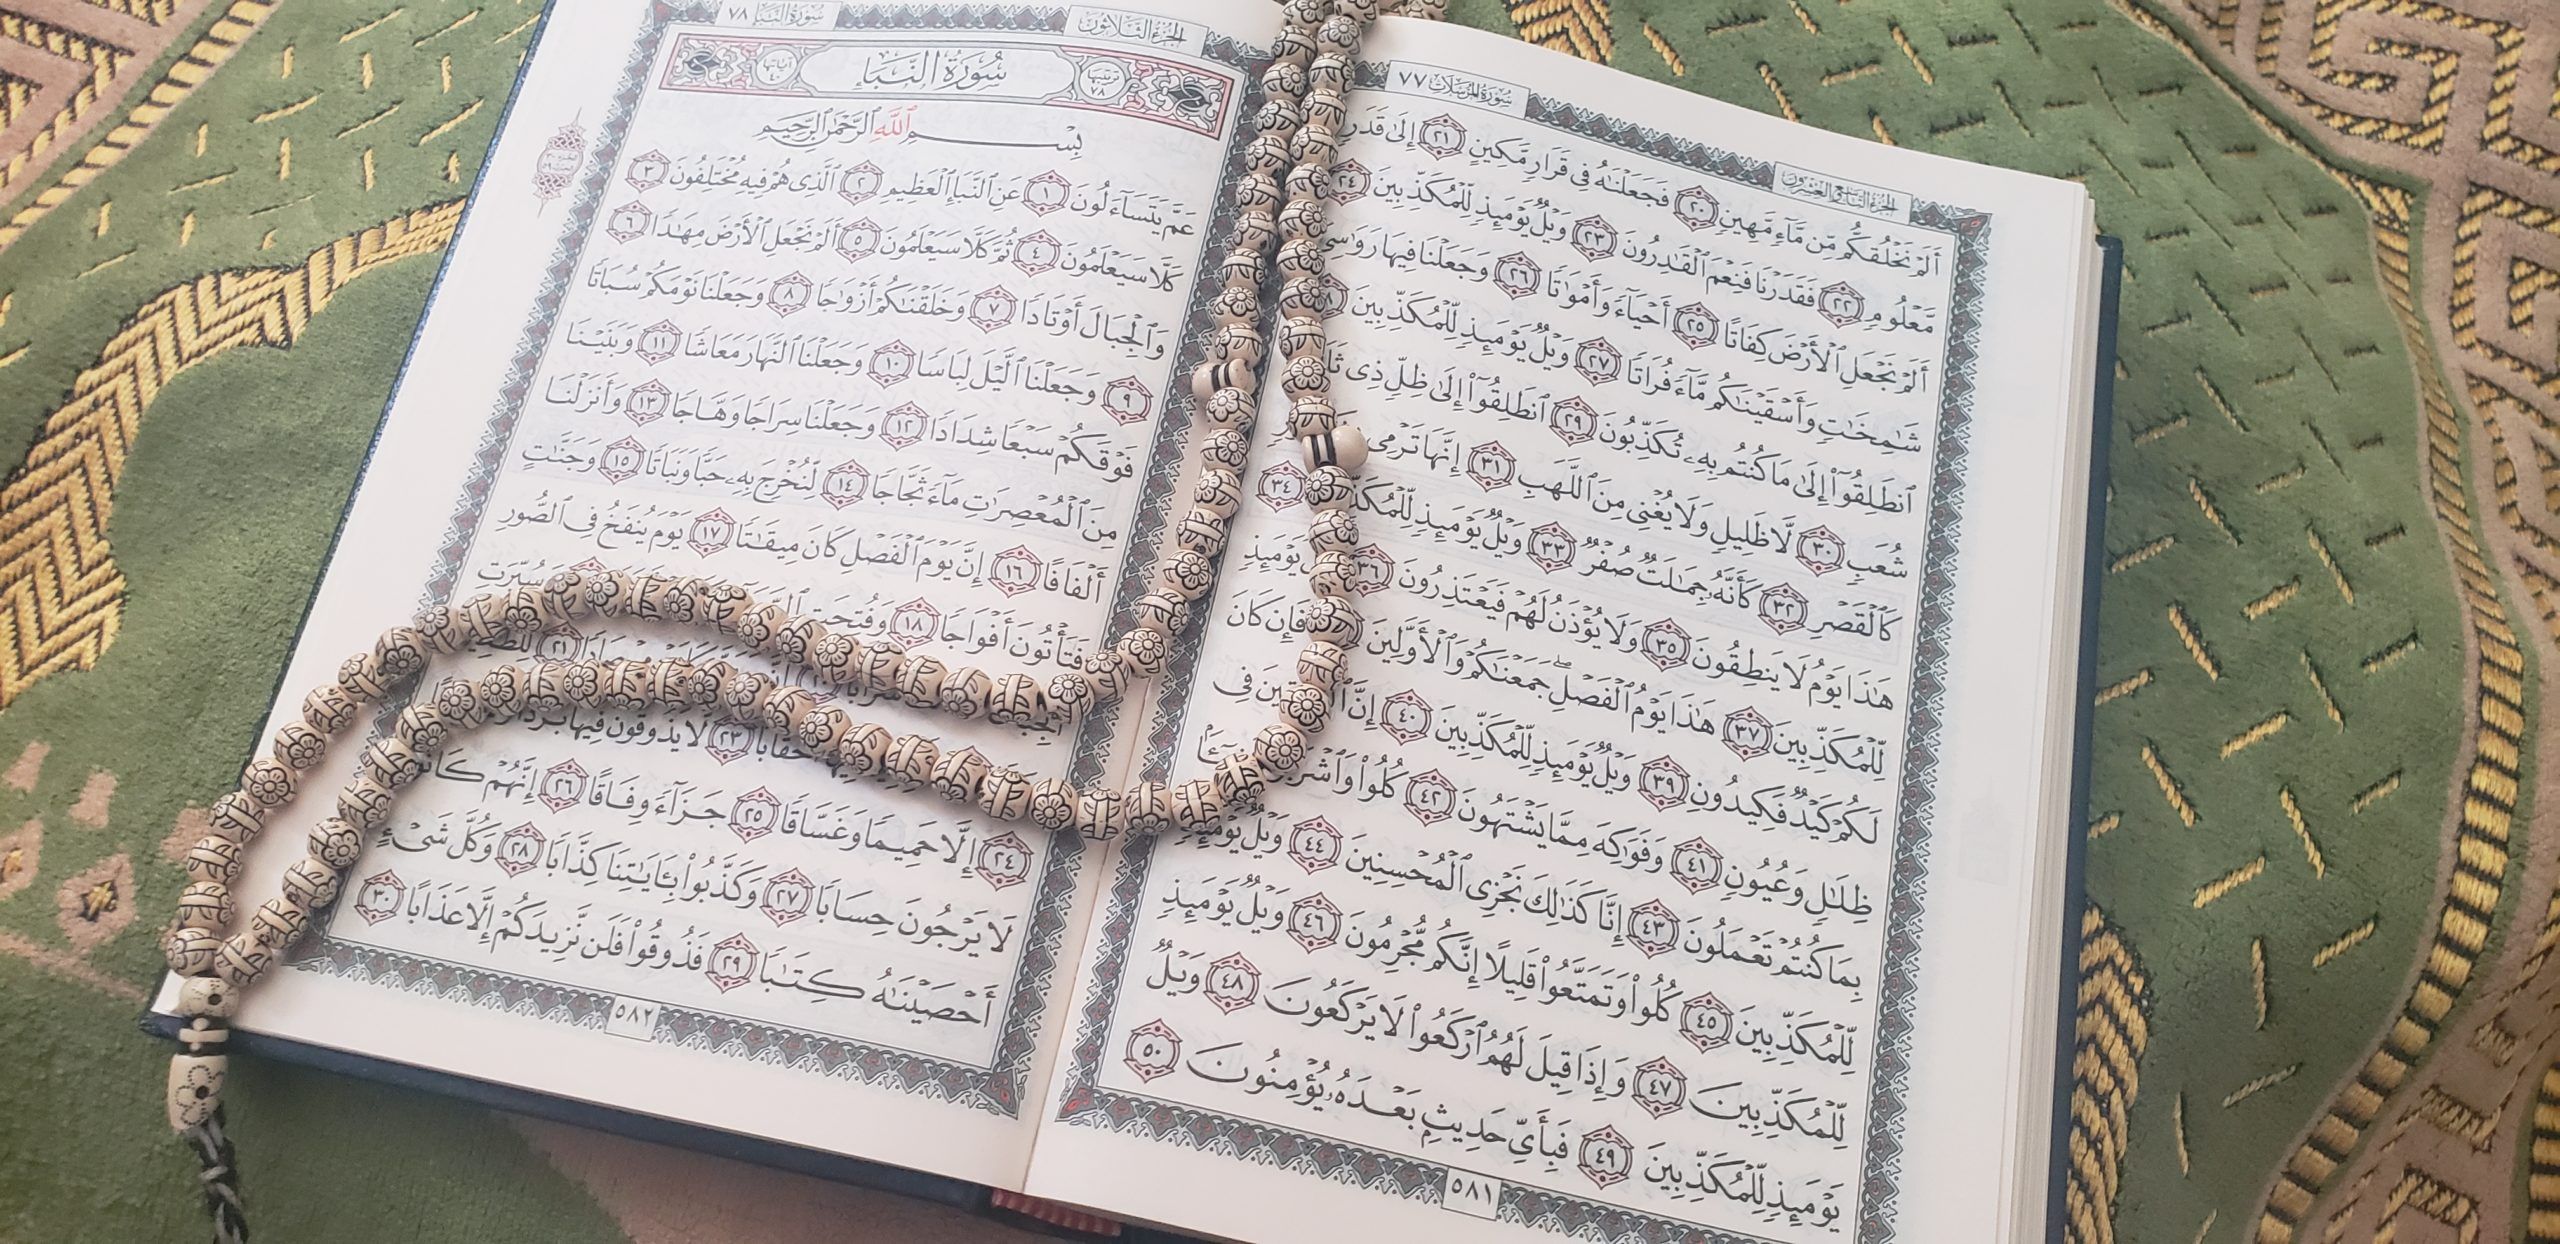 الجزء التاسع والعشرون سُورَةُ المُرْسَلَات ٧٧
أَلَمْ نَخْلُقكُّم مِّن مَّآءٍ مَّهِينٍ ٢٠ فَجَعَلْنَٰهُ فِى قَرَارٍ مَّكِينٍ ٢١ إِلَىٰ قَدَرٍ
مَّعْلُومٍ ٢٢ فَقَدَرْنَا فَنِعْمَ ٱلْقَٰدِرُونَ ٢٣ وَيْلٌ يَوْمَئِذٍ لِّلْمُكَذِّبِينَ ٢٤
أَلَمْ نَجْعَلِ ٱلْأَرْضَ كِفَاتًا ٢٥ أَحْيَآءً وَأَمْوَٰتًا ٢٦ وَجَعَلْنَا فِيهَا رَوَٰسِىَ
شَٰمِخَٰتٍ وَأَسْقَيْنَٰكُم مَّآءً فُرَاتًا ٢٧ وَيْلٌ يَوْمَئِذٍ لِّلْمُكَذِّبِينَ
ٱنطَلِقُوٓا۟ إِلَىٰ مَا كُنتُم بِهِۦ تُكَذِّبُونَ ٢٩ ٱنطَلِقُوٓا۟ إِلَىٰ ظِلٍّ ذِى
شُعَبٍ ٣٠ لَّا ظَلِيلٍ وَلَا يُغْنِى مِنَ ٱللَّهَبِ ٣١ إِنَّهَا تَرْمِى
كَٱلْقَصْرِ ٣٢ كَأَنَّهُۥ جِمَٰلَتٌ صُفْرٌ ٣٣ وَيْلٌ يَوْمَئِذٍ لِّلْمُكَذِّبِينَ ٣٤
هَٰذَا يَوْمُ لَا يَنطِقُونَ ٣٥ وَلَا يُؤْذَنُ لَهُمْ فَيَعْتَذِرُونَ ٣٦ يَوْمَئِذٍ
لِّلْمُكَذِّبِينَ ٣٧ هَٰذَا يَوْمُ ٱلْفَصْلِ ۖ جَمَعْنَٰكُمْ وَٱلْأَوَّلِينَ فَإِن كَانَ
لَكُمْ كَيْدٌ فَكِيدُونِ ٣٩ وَيْلٌ يَوْمَئِذٍ لِّلْمُكَذِّبِينَ ٤٠ إِنَّ فِى
ظِلَٰلٍ وَعُيُونٍ ٤١ وَفَوَٰكِهَ مِمَّا يَشْتَهُونَ ٤٢ كُلُوا۟ وَٱشْرَبُوا۟
بِمَا كُنتُمْ تَعْمَلُونَ ٤٣ إِنَّا كَذَٰلِكَ نَجْزِى ٱلْمُحْسِنِينَ ٤٤ وَيْلٌ يَوْمَئِذٍ
لِّلْمُكَذِّبِينَ ٤٥ كُلُوا۟ وَتَمَتَّعُوا۟ قَلِيلًا إِنَّكُم مُّجْرِمُونَ ٤٦ وَيْلٌ يَوْمَئِذٍ
لِّلْمُكَذِّبِينَ ٤٧ وَإِذَا قِيلَ لَهُمُ ٱرْكَعُوا۟ لَا يَرْكَعُونَ ٤٨ وَيْلٌ
يَوْمَئِذٍ لِّلْمُكَذِّبِينَ ٤٩ فَبِأَىِّ حَدِيثٍۭ بَعْدَهُۥ يُؤْمِنُونَ ٥٠
٥٨١
الجزء الثلاثون سُورَةُ النَّبَإِ ٧٨
ترتيبها ٧٨ سُورَةُ النَّبَإِ آياتها ٤٠
بِسْمِ ٱللَّهِ ٱلرَّحْمَٰنِ ٱلرَّحِيمِ
عَمَّ يَتَسَآءَلُونَ ١ عَنِ ٱلنَّبَإِ ٱلْعَظِيمِ ٢ ٱلَّذِى هُمْ فِيهِ مُخْتَلِفُونَ ٣
كَلَّا سَيَعْلَمُونَ ٤ ثُمَّ كَلَّا سَيَعْلَمُونَ ٥ أَلَمْ نَجْعَلِ ٱلْأَرْضَ مِهَٰدًا ٦
وَٱلْجِبَالَ أَوْتَادًا ٧ وَخَلَقْنَٰكُمْ أَزْوَٰجًا ٨ وَجَعَلْنَا نَوْمَكُمْ سُبَاتًا
٩ وَجَعَلْنَا ٱلَّيْلَ لِبَاسًا ١٠ وَجَعَلْنَا ٱلنَّهَارَ مَعَاشًا ١١ وَبَنَيْنَا
فَوْقَكُمْ سَبْعًا شِدَادًا ١٢ وَجَعَلْنَا سِرَاجًا وَهَّاجًا ١٣ وَأَنزَلْنَا
مِنَ ٱلْمُعْصِرَٰتِ مَآءً ثَجَّاجًا ١٤ لِّنُخْرِجَ بِهِۦ حَبًّا وَنَبَاتًا ١٥ وَجَنَّٰتٍ
أَلْفَافًا ١٦ إِنَّ يَوْمَ ٱلْفَصْلِ كَانَ مِيقَٰتًا ١٧ يَوْمَ يُنفَخُ فِى ٱلصُّورِ
فَتَأْتُونَ أَفْوَاجًا ١٨ وَفُتِحَتِ وَسُيِّرَتِ
٢١
٢٣ لَّا يَذُوقُونَ فِيهَا
٢٤ إِلَّا حَمِيمًا وَغَسَّاقًا ٢٥ جَزَآءً وِفَاقًا ٢٦ إِنَّهُمْ كَانُوا۟
لَا يَرْجُونَ حِسَابًا ٢٧ وَكَذَّبُوا۟ بِـَٔايَٰتِنَا كِذَّابًا ٢٨ وَكُلَّ شَىْءٍ
أَحْصَيْنَٰهُ كِتَٰبًا ٢٩ فَذُوقُوا۟ فَلَن نَّزِيدَكُمْ إِلَّا عَذَابًا ٣٠
٥٨٢